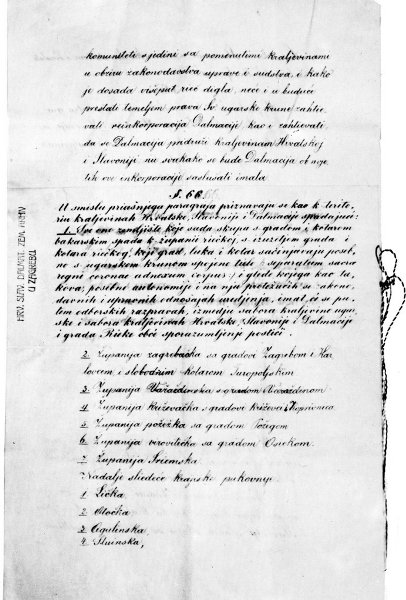 komuniteti sjedini sa pomenutimi kraljevinami
u obziru zakonodavstva uprave i sudstva, i kako
je dosada višeput reč digla, neće i u buduće
prestati temeljem prava Sv ugarske krune zahtie
vati reinkorporaciju Dalmacije kao i zahtievati
da se Dalmacija pridruži kraljevinam Hrvatskoj
i Slavoniji nu svakako se bude Dalmacija ob uvje
tih ove inkorporacije saslušati imala
§. 66.
U smislu priašnjega paragrafa priznavaju se kao k terito,
riu kraljevinah Hrvatske, Slavonije i Dalmacije spadajući:
1. Sve ono zemljište koje sada skupa s gradom i kotarom
bakarskim spada k županii riečkoj, s izuzetjem grada i
kotara riečkog, koji grad, luka i kotar sačinjavaju poseb,
no s ugarskom krunom spojeno tielo (separatum sacrae
regni coronae adnexum corpus) i glede kojega kao ta,
kova: posebne autonomije i na nju protežućih se zakono,
davnih i upravnih odnošajah uredjenja, imat će se pu,
tem odborskih razpravah, izmedju sabora kraljevine ugar,
ske i sabora kraljevinah Hrvatske, Slavonije i Dalmacije
i grada Rieke obće sporazumljenje postići.
2 Županija zagrebačka sa gradovi Zagrebom i Kar
lovcem i slobodnim kotarom Turopoljskim
3 Županija Varaždinska s gradom Varaždinom
4 Županija Križevačka s gradovi Križevci i Koprivnica
5 Županija požežka sa gradom Požegom
6 Županija virovitička sa gradom Osiekom
7 Županija Sriemska
Nadalje sliedeće kranske pukovnije
1 Lička
2 Otočka
3 Ogulinska,
4 Sluinska,
HRV. SLAV. DALMAT. ZEM. ARKIV
U ZAGREBU